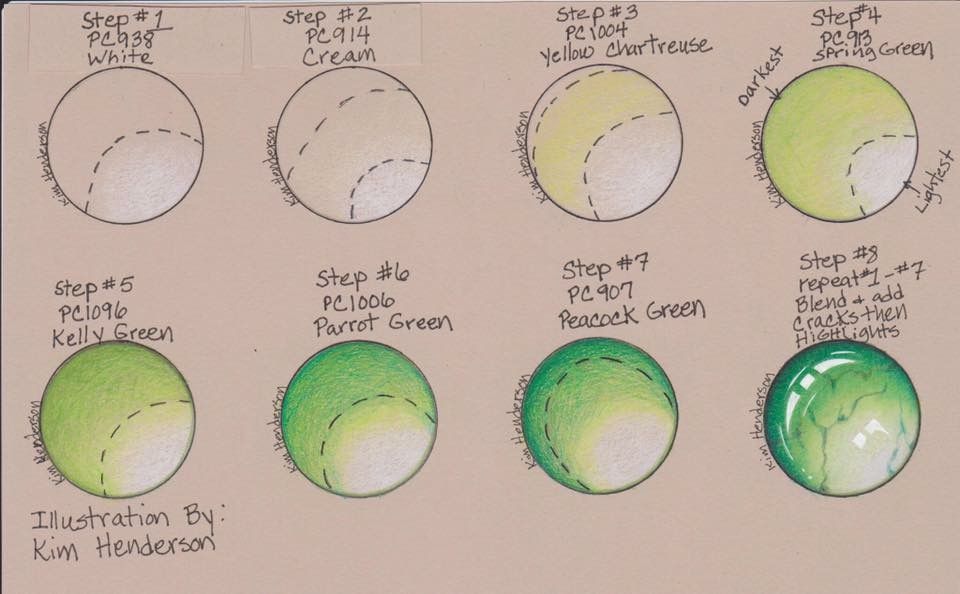 Step #1
PC938
White
Kim Henderson
Step #2
PC914
Cream
Kim Henderson
Step #3
PC1004
Yellow Chartreuse
Kim Henderson
Step #4
PC913
Spring Green
Darkest
Kim Henderson
Lightest
Step #5
PC1096
Kelly Green
Kim Henderson
Step #6
PC1006
Parrot Green
Kim Henderson
Step #7
PC907
Peacock Green
Kim Henderson
Step #8
repeat #1-#7
Blend & add
Cracks then
HiGHLights
Kim Henderson
Illustration By:
Kim Henderson